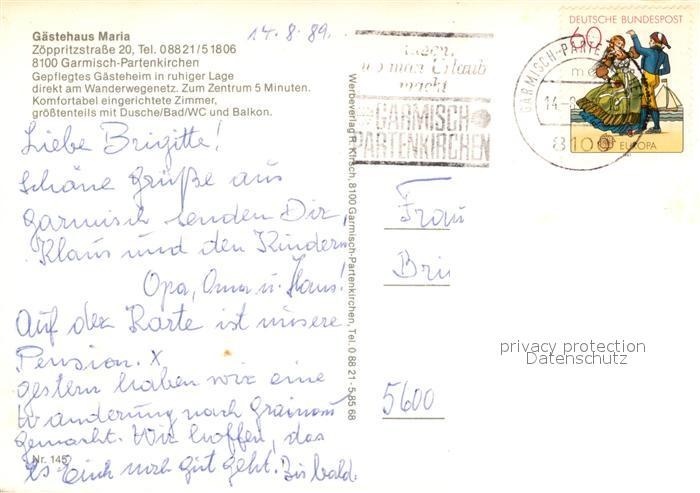 Gästehaus Maria
Zöppritzstraße 20, Tel. 08821/51806
8100 Garmisch-Partenkirchen
Gepflegtes Gästeheim in ruhiger Lage
direkt am Wanderwegenetz. Zum Zentrum 5 Minuten.
Komfortabel eingerichtete Zimmer,
größtenteils mit Dusche/Bad/WC und Balkon.
14.8.89.
Liebe Brigitte!
Schöne Grüße aus
Garmisch senden Dir,
Klaus und den Kindern
Opa, Oma u. Klaus!
Auf der Karte ist unsere
Pension. X
gestern haben wir eine
Wanderung nach Grainau
gemacht. Wir hoffen, das
es Euch noch gut geht. Bis bald.
Nr. 145
Werbeverlag R. Kirsch, 8100 Garmisch-Partenkirchen, Tel. 0 88 21 - 5 85 68
wo man Urlaub
macht
GARMISCH
PARTENKIRCHEN
GARMISCH-PARTE
14-8
8100
DEUTSCHE BUNDESPOST
60
EUROPA
Frau
Bri
5600
privacy protection
Datenschutz